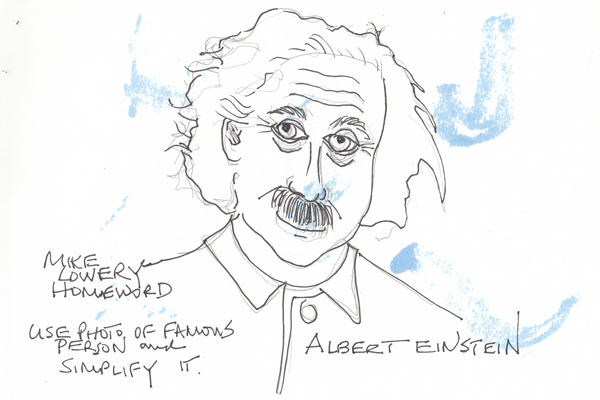 MIKE
LOWERY
HOMEWORD
USE PHOTO OF FAMOUS
PERSON and
SIMPLIFY IT.
ALBERT EINSTEIN